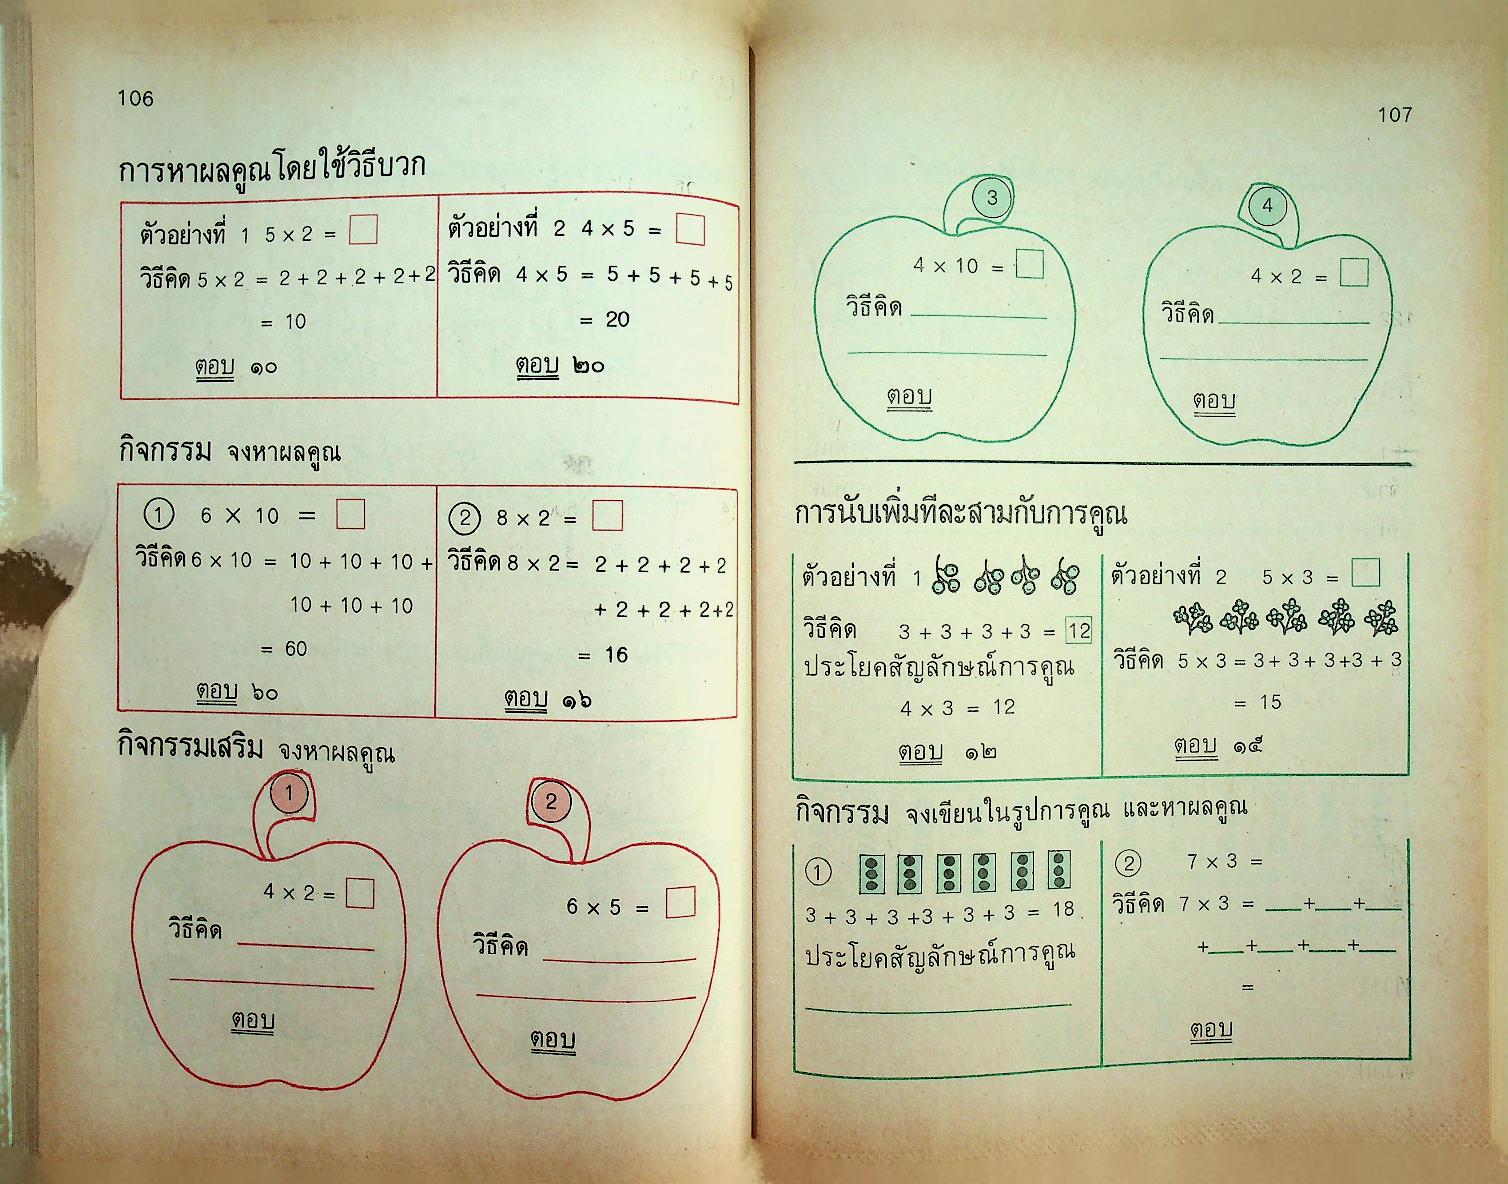 106
การหาผลคูณโดยใช้วิธีบวก
ตัวอย่างที่ 1 5 × 2 =
วิธีคิด 5 × 2 = 2 + 2 + 2 + 2 + 2
= 10
ตอบ ๑๐
ตัวอย่างที่ 2 4 × 5 =
วิธีคิด 4 × 5 = 5 + 5 + 5 + 5
= 20
ตอบ ๒๐
กิจกรรม จงหาผลคูณ
1 6 × 10 =
วิธีคิด 6 × 10 = 10 + 10 + 10 +
10 + 10 + 10
= 60
ตอบ ๖๐
2 8 × 2 =
วิธีคิด 8 × 2 = 2 + 2 + 2 + 2
+ 2 + 2 + 2 + 2
= 16
ตอบ ๑๖
กิจกรรมเสริม จงหาผลคูณ
1
4 × 2 =
วิธีคิด
ตอบ
2
6 × 5 =
วิธีคิด
ตอบ
107
3
4 × 10 =
วิธีคิด
ตอบ
4
4 × 2 =
วิธีคิด
ตอบ
การนับเพิ่มทีละสามกับการคูณ
ตัวอย่างที่ 1
วิธีคิด 3 + 3 + 3 + 3 = 12
ประโยคสัญลักษณ์การคูณ
4 × 3 = 12
ตอบ ๑๒
ตัวอย่างที่ 2 5 × 3 =
วิธีคิด 5 × 3 = 3 + 3 + 3 + 3 + 3
= 15
ตอบ ๑๕
กิจกรรม จงเขียนในรูปการคูณ และหาผลคูณ
1
3 + 3 + 3 + 3 + 3 + 3 = 18
ประโยคสัญลักษณ์การคูณ
2 7 × 3 =
วิธีคิด 7 × 3 = __+__+__
+__+__+__+__
=
ตอบ